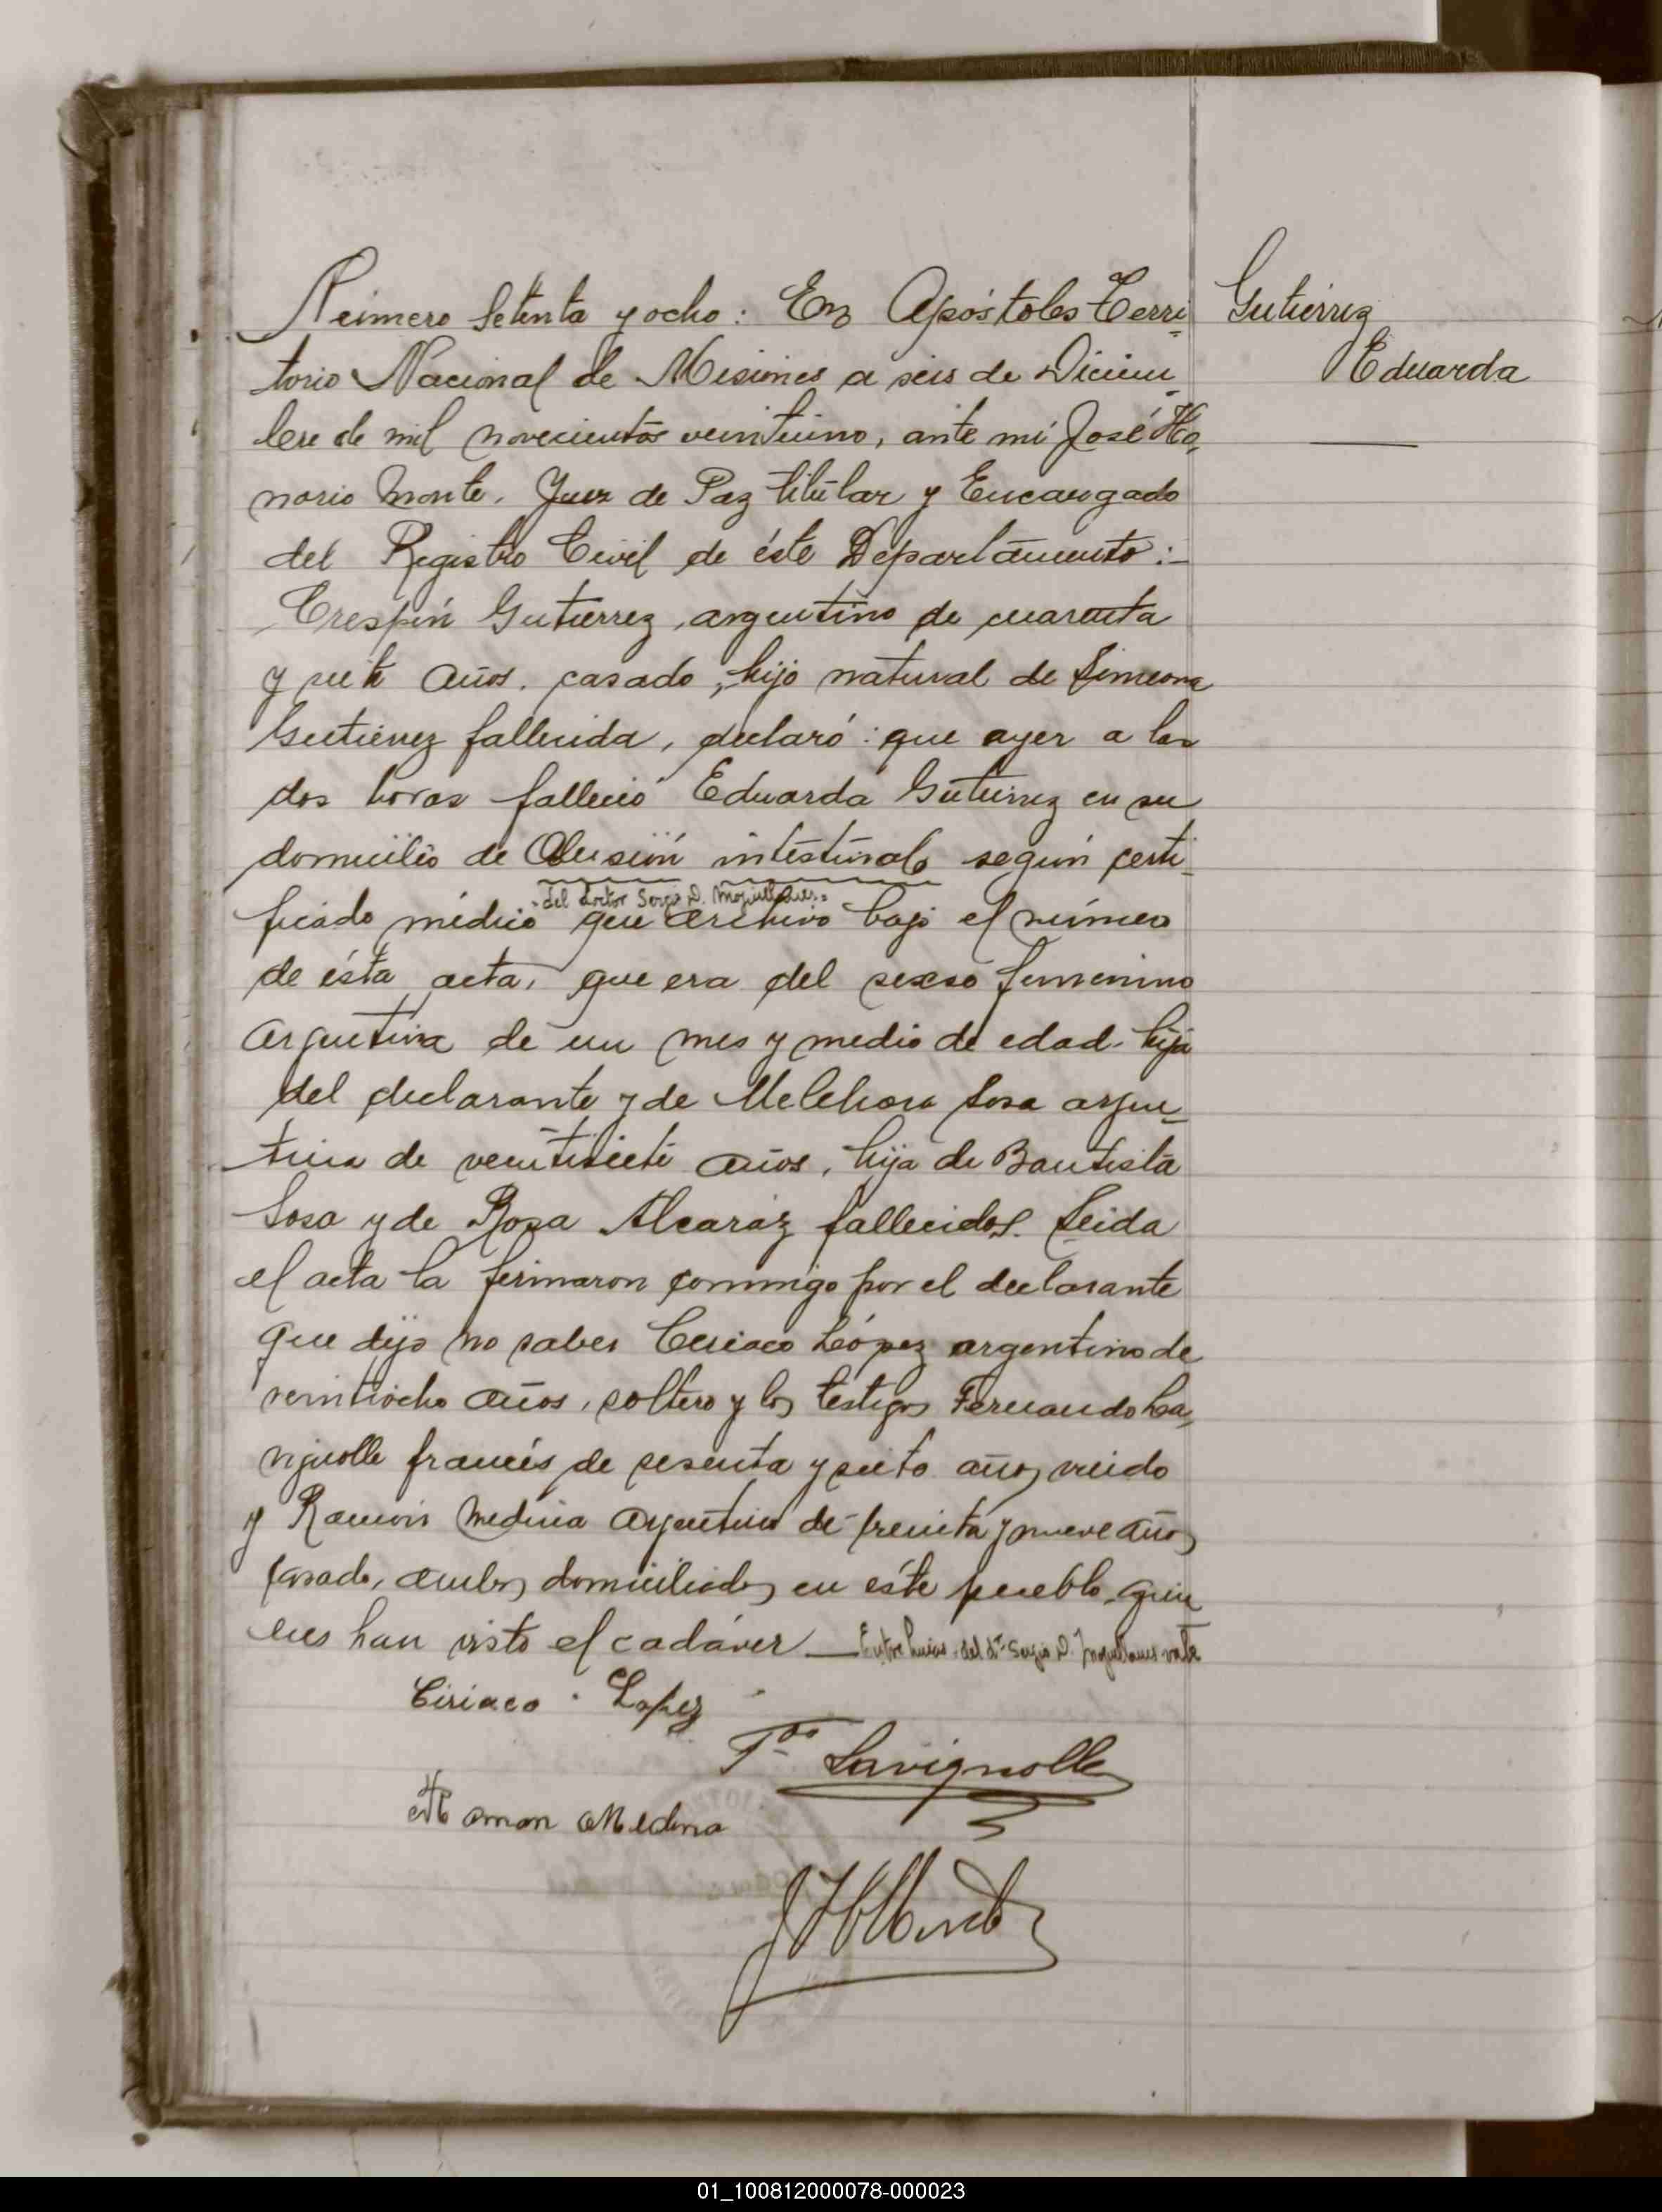 Número Setenta y ocho: En Apóstoles Terri
Gutiérrez
Eduarda
torio Nacional de Misiones a seis de Diciem
bre de mil novecientos veintiuno, ante mi José Ho
norio Monte, Juez de Paz titular y Encargado
del Registro Civil de éste Departamento:
Crespín Gutierrez, argentino de cuarenta
y siete años, casado, hijo natural de Simeona
Gutierrez fallecida, declaró: que ayer a las
dos horas falleció Eduarda Gutierrez en su
domicilio de intestinal según certi
del doctor Sergio D.
ficado médico que archivo bajo el número
de ésta acta, que era del sexso femenino
argentina de un mes y medio de edad. hija
del declarante y de Melchora Sosa argen
tina de veintisiete años, hija de Bautista
Sosa y de Rosa Alcaráz fallecidos. Leida
el acta la firmaron conmigo por el declarante
que dijo no saber Ciriaco López argentino de
veintiocho años, soltero y los testigos Fernando La
vignolle francés de sesenta y siete años, viudo
y Ramón Medina argentino de treinta y nueve años
casado, ambos domiciliados en éste pueblo quie
nes han visto el cadáver — Entre lineas: del dr. Sergio D. vale
Ciriaco Lopez
Fdo Lavignolle
Ramon Medina
J H Monte
01_100812000078-000023